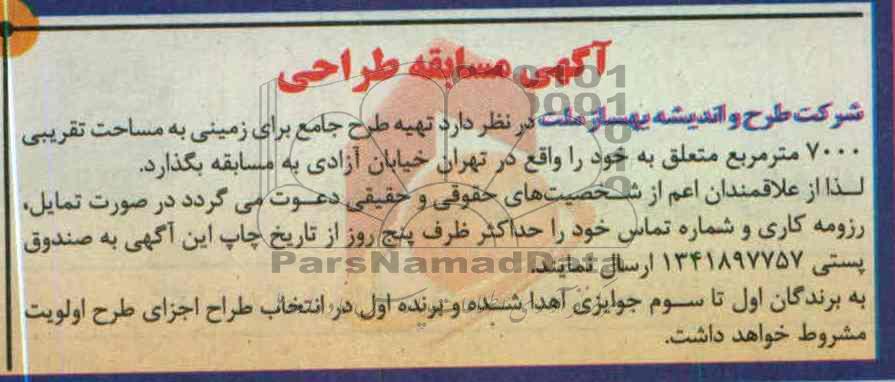 آگهی مسابقه طراحی
شرکت طرح و اندیشه بهساز ملت در نظر دارد تهیه طرح جامع برای زمینی به مساحت تقریبی
۷۰۰۰ مترمربع متعلق به خود را واقع در تهران خیابان آزادی به مسابقه بگذارد.
لـذا از علاقمندان اعم از شـخصیت‌های حقوقی و حقیقی دعـوت می گردد در صورت تمایل،
رزومه کاری و شماره تماس خود را حداکثر ظرف پنج روز از تاریخ چاپ این آگهی به صندوق
پستی ۱۳۴۱۸۹۷۷۵۷ ارسال نمایند.
ParsNamadData
به برندگان اول تا سـوم جوایزی اهدا شـده و برنده اول در انتخاب طراح اجزای طرح اولویت
مشروط خواهد داشت.